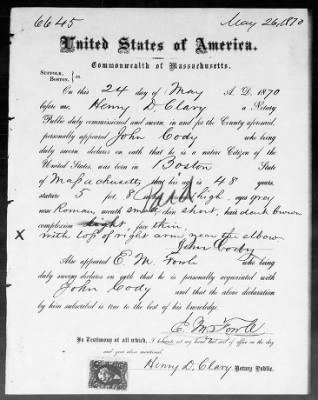 6645
May 26, 1870
United States of America.
Commonwealth of Massachusetts.
SUFFOLK,
BOSTON, } ss.
On this 24 day of May A. D. 1870
before me, Henry D Clary a Notary
Public duly commissioned and sworn, in and for the County aforesaid,
personally appeared John Cody who being
duly sworn declares on oath that he is a native Citizen of the
United States, was born in Boston State
of Massachusetts that his age is 48 years,
stature 5 feet 8 high, eyes grey
nose Roman, mouth small chin short, hair dark brown
complexion light, face thin
x with top of right arm near the elbow
John Cody
Also appeared E M. Fowle who being
duly sworn declares on oath that he is personally acquainted with
John Cody and that the above declaration
by him subscribed is true to the best of his knowledge.
E. M. Fowle
In Testimony of all which, I hereunto set my hand and seal of office on the day
and year above mentioned.
Henry D. Clary Notary Public.